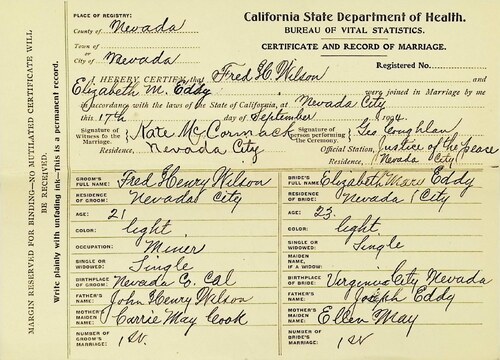 PLACE OF REGISTRY:
County of Nevada
Town of
or
City of Nevada
California State Department of Health.
BUREAU OF VITAL STATISTICS.
CERTIFICATE AND RECORD OF MARRIAGE.
Registered No.
I HEREBY CERTIFY that Fred H. Wilson and
Elizabeth M. Eddy were joined in Marriage by me
in accordance with the laws of the State of California, at Nevada City
this 17th day of September
Signature of Witness to the Marriage, Kate McCormack
Signature of person performing the Ceremony. Geo Coughlan
Residence, Nevada City
Official Station, Justice of the peace
Nevada City
GROOM'S FULL NAME: Fred Henry Wilson
BRIDE'S FULL NAME: Elizabeth Marie Eddy
RESIDENCE OF GROOM: Nevada City
RESIDENCE OF BRIDE: Nevada City
AGE: 21
AGE: 23
COLOR: light
COLOR: light
OCCUPATION: Miner
SINGLE OR WIDOWED: Single
SINGLE OR WIDOWED: Single
MAIDEN NAME, IF A WIDOW:
BIRTHPLACE OF GROOM: Nevada Co. Cal
BIRTHPLACE OF BRIDE: Virginia City Nevada
FATHER'S NAME: John Henry Wilson
FATHER'S NAME: Joseph Eddy
MOTHER'S MAIDEN NAME: Carrie May Cook
MOTHER'S MAIDEN NAME: Ellen May
NUMBER OF GROOM'S MARRIAGE: 1st
NUMBER OF BRIDE'S MARRIAGE: 1st
MARGIN RESERVED FOR BINDING—NO MUTILATED CERTIFICATE WILL BE RECEIVED.
Write plainly with unfading ink—This is a permanent record.